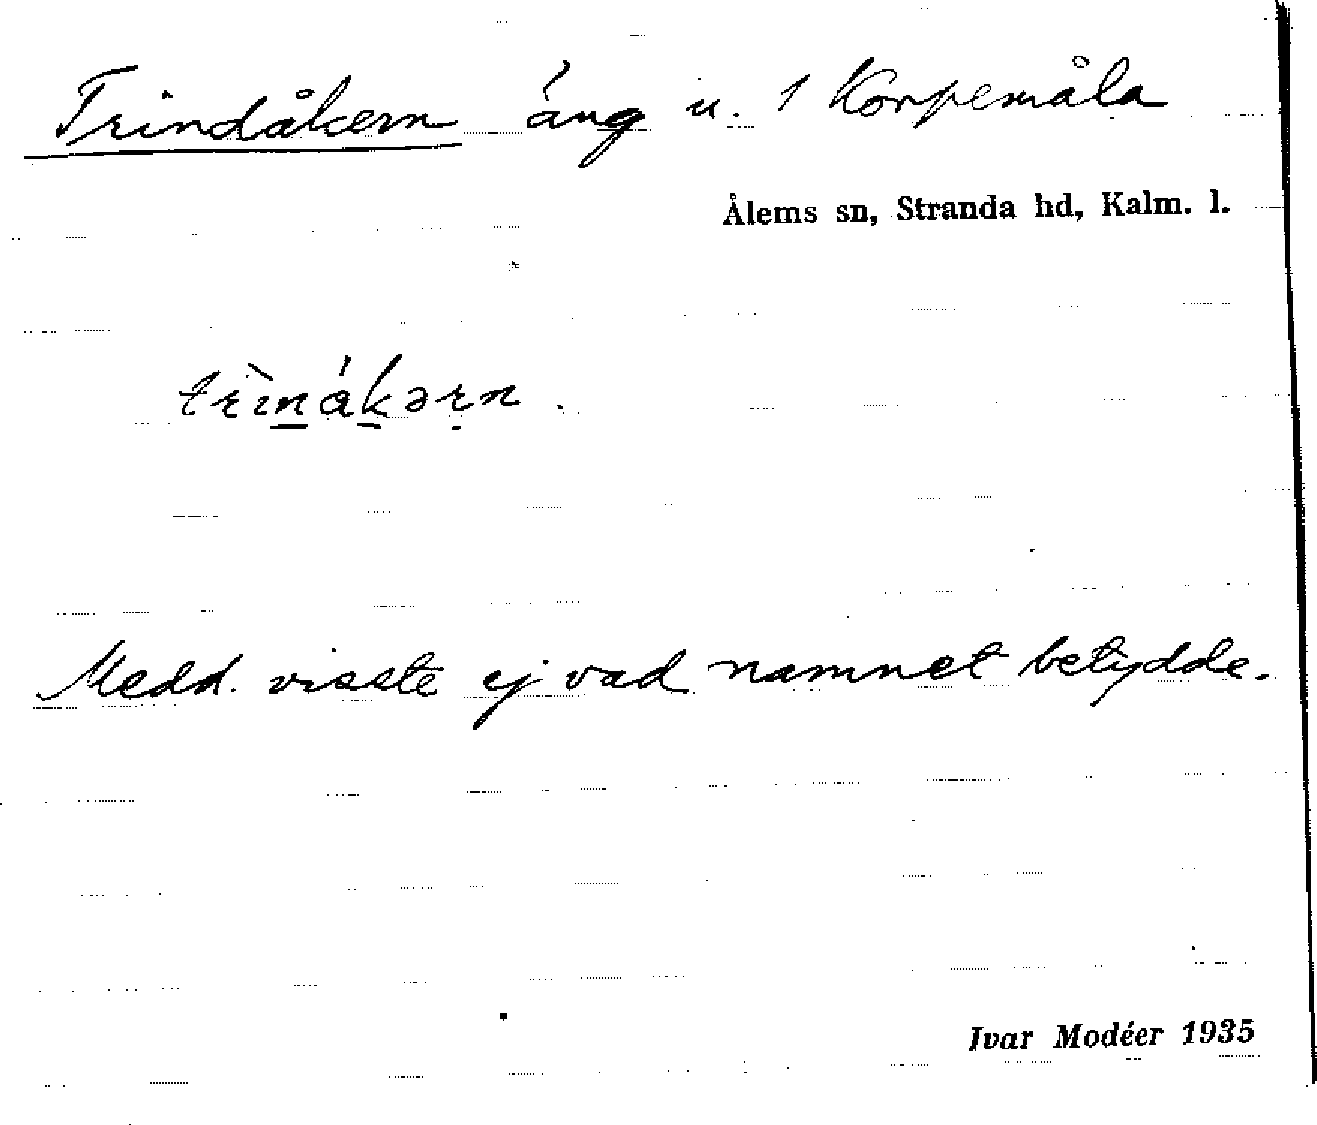 Trindåkern äng u. 1 Korpemåla
Ålems sn, Stranda hd, Kalm. l.
trìnákərn.
Medd. visste ej vad namnet betydde.
Ivar Modéer 1935